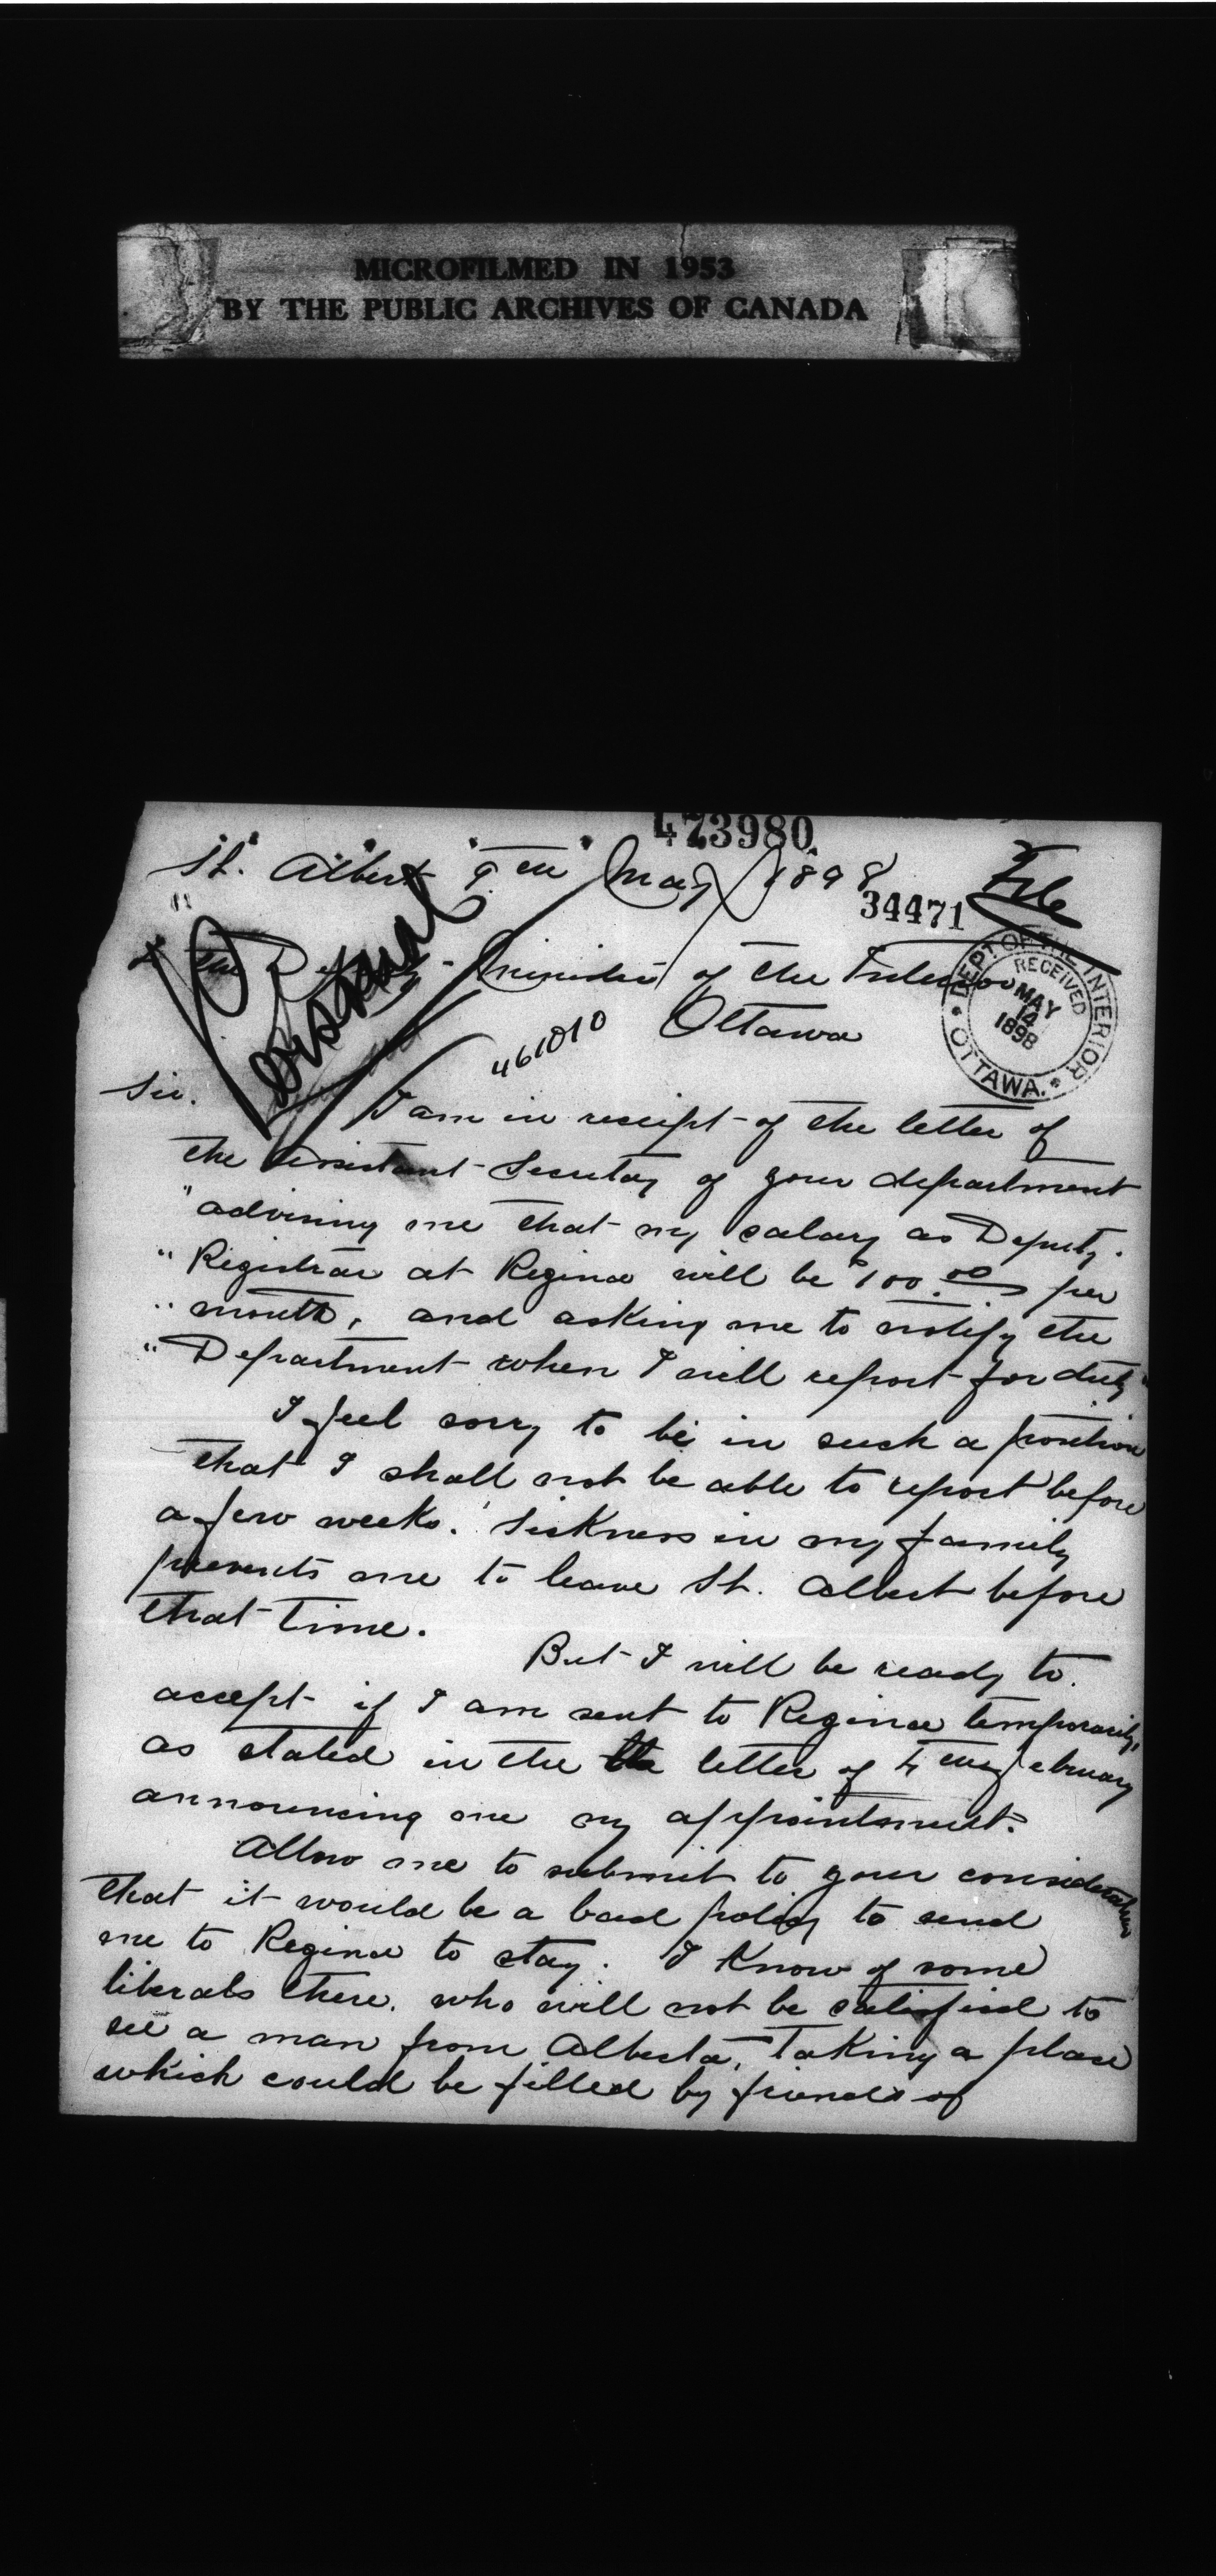 MICROFILMED IN 1953
BY THE PUBLIC ARCHIVES OF CANADA
473980
St. Albert 9th May 1898
File
34471
The Deputy-Minister of the Interior
DEPT. OF THE INTERIOR
RECEIVED
MAY
14
1898
OTTAWA.
461010
Ottawa
Sir.
I am in receipt of the letter of
the Assistant Secretay of your department
"advising me that my salary as Deputy.
"Registrar at Regina will be $100.00 per
"month, and asking me to notify the
"Department when I will report for duty"
I feel sorry to be in such a position
that I shall not be able to report before
a few weeks. Sickness in my family
prevents me to leave St. Albert before
that time.
But I will be ready to
accept if I am sent to Regina temporarily,
as stated in the letter of 4 February
announcing me my appointment.
Allow me to submit to your consideration
that it would be a bad policy to send
me to Regina to stay. I Know of some
liberals there. who will not be satisfied to
see a man from Alberta, Taking a place
which could be filled by friends of